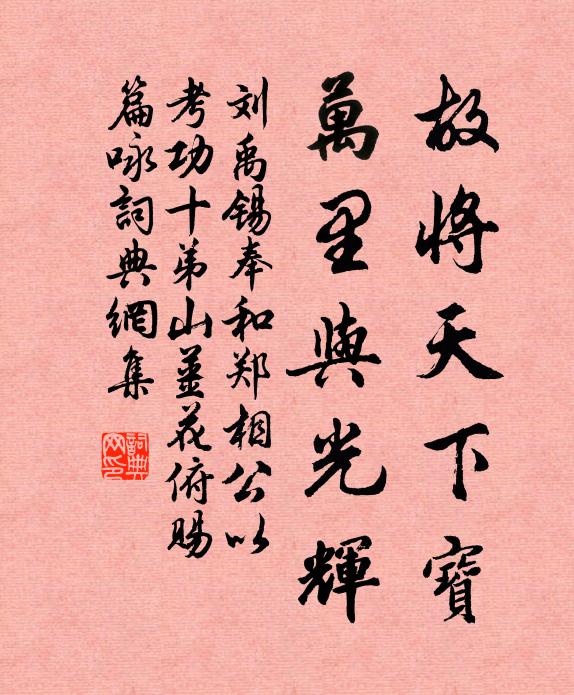 故将天下寶
萬里與光輝
刘禹锡奉和郑相公以
考功十弟山薑花俯賜
篇咏詞典網集
詞典
网印